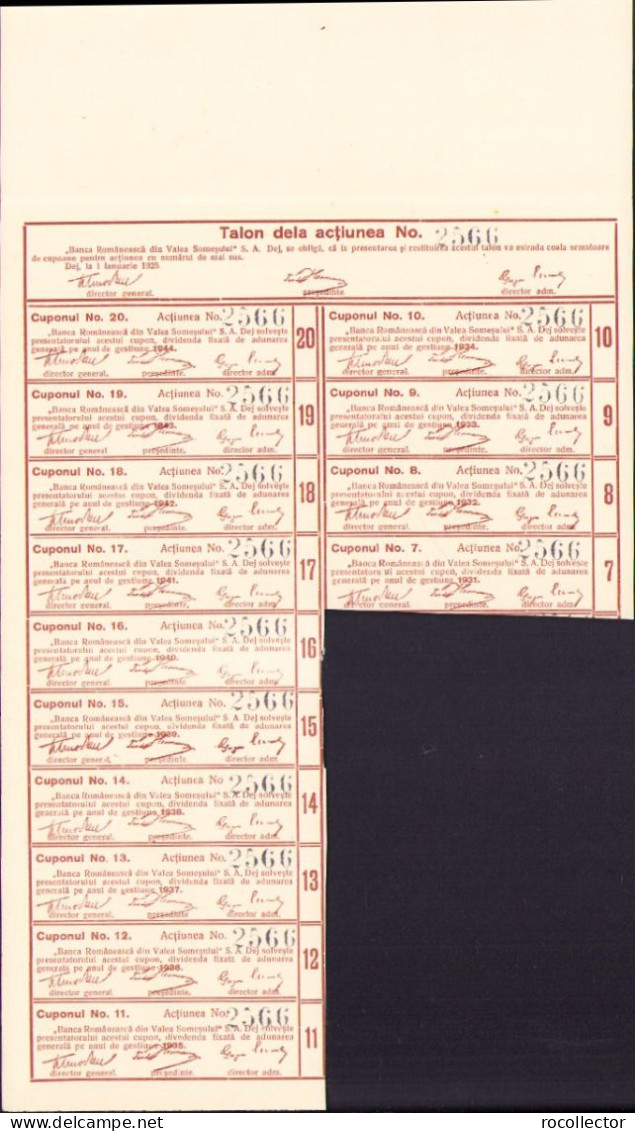 Talon dela acțiunea No. 2566
„Banca Românească din Valea Someșului" S. A. Dej, se obligă, că la prezentarea și restituirea acestui talon va estrada coala următoare
de cupoane pentru acțiunea cu numărul de mai sus.
Dej, la 1 Ianuarie 1925
director general. președinte. director adm.
Cuponul No. 20. Acțiunea No. 2566 20
„Banca Românească din Valea Someșului" S. A. Dej solvește
presentatorului acestui cupon, dividenda fixată de adunarea
generală pe anul de gestiune 1944.
director general. președinte. director adm.
Cuponul No. 19. Acțiunea No. 2566 19
„Banca Românească din Valea Someșului" S. A. Dej solvește
presentatorului acestui cupon, dividenda fixată de adunarea
generală pe anul de gestiune 1943.
director general. președinte. director adm.
Cuponul No. 18. Acțiunea No. 2566 18
„Banca Românească din Valea Someșului" S. A. Dej solvește
presentatorului acestui cupon, dividenda fixată de adunarea
generală pe anul de gestiune 1942.
director general. președinte. director adm.
Cuponul No. 17. Acțiunea No. 2566 17
„Banca Românească din Valea Someșului" S. A. Dej solvește
presentatorului acestui cupon, dividenda fixată de adunarea
generală pe anul de gestiune 1941.
director general. președinte. director adm.
Cuponul No. 16. Acțiunea No. 2566 16
„Banca Românească din Valea Someșului" S. A. Dej solvește
presentatorului acestui cupon, dividenda fixată de adunarea
generală pe anul de gestiune 1940.
director general. președinte director adm.
Cuponul No. 15. Acțiunea No. 2566 15
„Banca Românească din Valea Someșului" S. A. Dej solvește
presentatorului acestui cupon, dividenda fixată de adunarea
generală pe anul de gestiune 1939.
director general. președinte. director adm.
Cuponul No. 14. Acțiunea No. 2566 14
„Banca Românească din Valea Someșului" S. A. Dej solvește
presentatorului acestui cupon, dividenda fixată de adunarea
generală pe anul de gestiune 1938.
director general. președinte. director adm.
Cuponul No. 13. Acțiunea No. 2566 13
„Banca Românească din Valea Someșului" S. A. Dej solvește
presentatorului acestui cupon, dividenda fixată de adunarea
generală pe anul de gestiune 1937.
director general. președinte director adm.
Cuponul No. 12. Acțiunea No. 2566 12
„Banca Românească din Valea Someșului" S. A. Dej solvește
presentatorului acestui cupon, dividenda fixată de adunarea
generală pe anul de gestiune 1936.
director general. președinte. director adm.
Cuponul No. 11. Acțiunea No. 2566 11
„Banca Românească din Valea Someșului" S. A. Dej solvește
presentatorului acestui cupon, dividenda fixată de adunarea
generală pe anul de gestiune 1935.
director general. președinte. director adm.
Cuponul No. 10. Acțiunea No. 2566 10
„Banca Românească din Valea Someșului" S. A. Dej solvește
presentatorului acestui cupon, dividenda fixată de adunarea
generală pe anul de gestiune 1934.
director general. președinte. director adm.
Cuponul No. 9. Acțiunea No. 2566 9
„Banca Românească din Valea Someșului" S. A. Dej solvește
presentatorului acestui cupon, dividenda fixată de adunarea
generală pe anul de gestiune 1933.
director general. președinte. director adm.
Cuponul No. 8. Acțiunea No. 2566 8
„Banca Românească din Valea Someșului" S. A. Dej solvește
presentatorului acestui cupon, dividenda fixată de adunarea
generală pe anul de gestiune 1932.
director general. președinte. director adm.
Cuponul No. 7. Acțiunea No. 2566 7
„Banca Românească din Valea Someșului" S. A. Dej solvește
presentatorului acestui cupon, dividenda fixată de adunarea
generală pe anul de gestiune 1931.
director general. președinte. director adm.
delcampe.net
rocollector